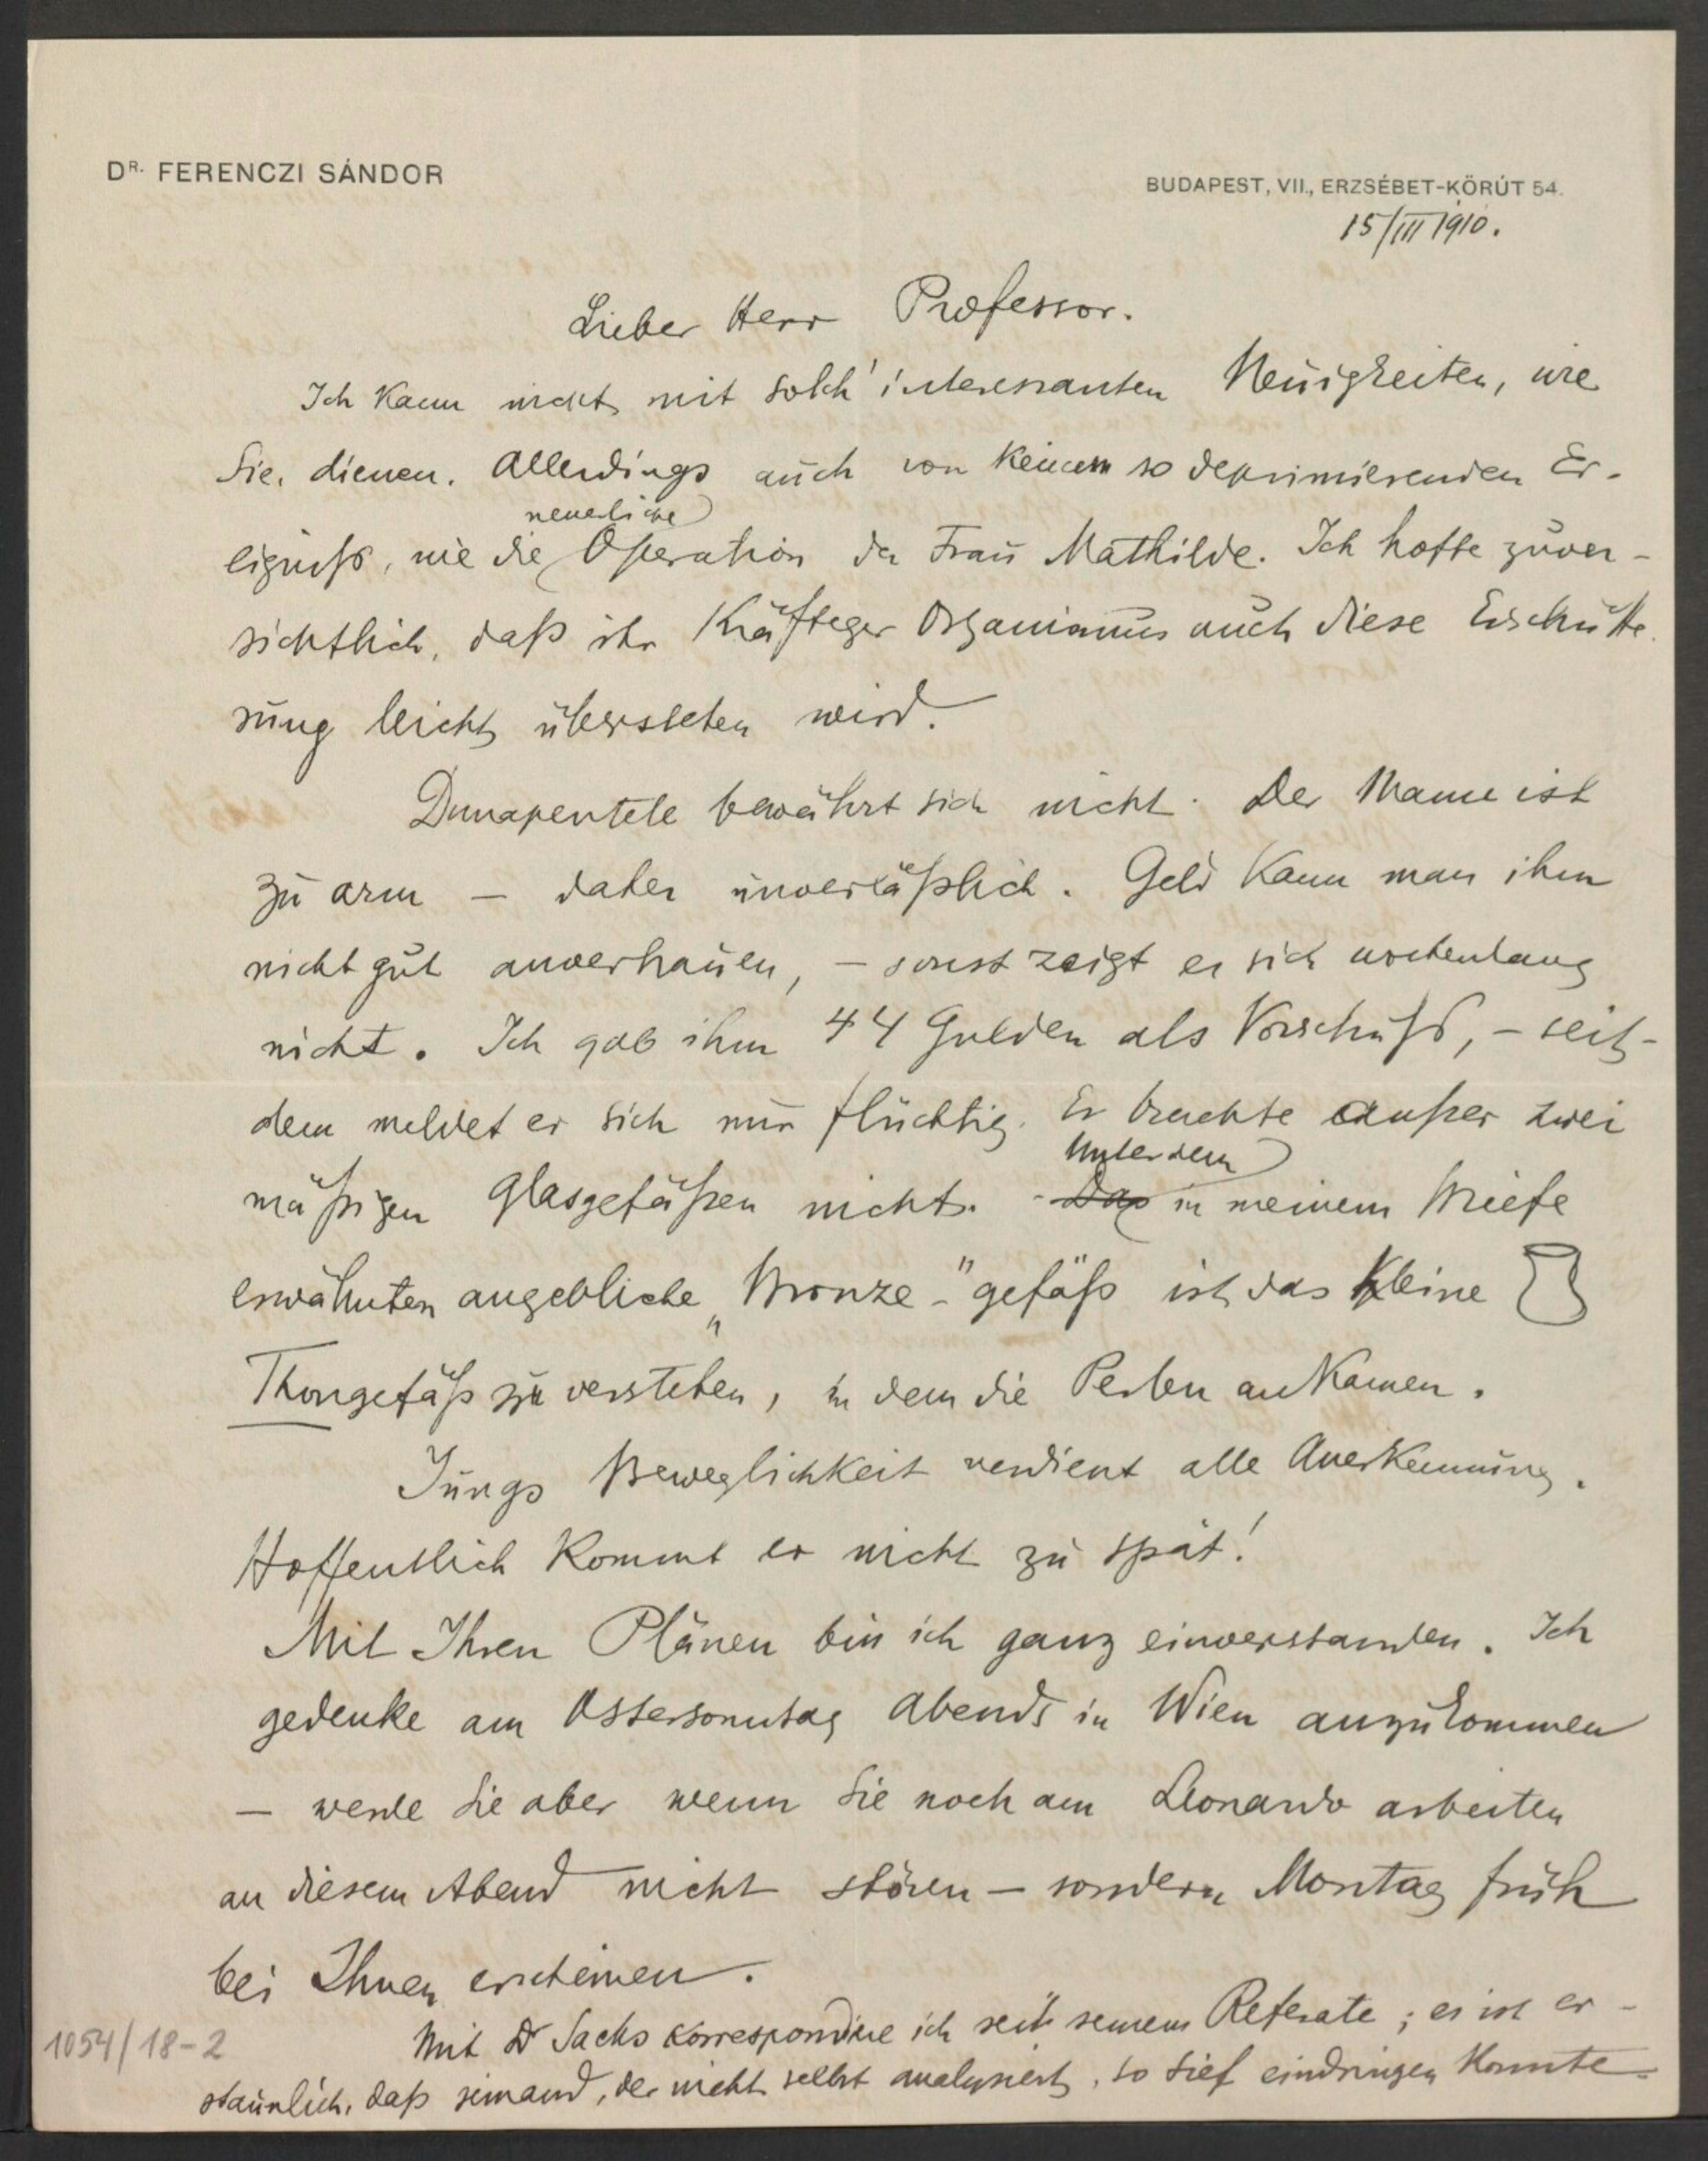 DR. FERENCZI SÁNDOR
BUDAPEST, VII., ERZSÉBET-KÖRÚT 54.
15/III 1910.
Lieber Herr Professor.
Ich kann nicht mit solch' interessanten Neuigkeiten, wie
Sie, dienen. Allerdings auch von keinem so deprimierenden Er-
neuerliche
eigniss, wie die Operation der Frau Mathilde. Ich hoffe zuver-
sichtlich, daß ihr kräftiger Organismus auch diese Erschütte-
rung leicht überstehen wird.
Dunapentele bewährt sich nicht. Der Mann ist
zu arm — daher unverläßlich. Geld kann man ihm
nicht gut anvertrauen, — sonst zeigt er sich wochenlang
nicht. Ich gab ihm 44 Gulden als Vorschuss, — seit-
dem meldet er sich nur flüchtig. Er brachte außer zwei
Unter dem
mäßigen Glasgefäßen nichts. Das in meinem Briefe
erwähnten angebliche „Bronze-"gefäß ist das kleine
Thongefäß zu verstehen, in dem die Perlen ankamen.
Jungs Beweglichkeit verdient alle Anerkennung.
Hoffentlich kommt er nicht zu spät!
Mit Ihren Plänen bin ich ganz einverstanden. Ich
gedenke am Ostersonntag Abends in Wien anzukommen
— werde Sie aber wenn Sie noch am Leonardo arbeiten
an diesem Abend nicht stören — sondern Montag früh
bei Ihnen erscheinen.
Mit Dr Sachs korrespondire ich seit seinem Referate; es ist er-
staunlich, daß jemand, der nicht selbst analysiert, so tief eindringen konnte
1054/18-2